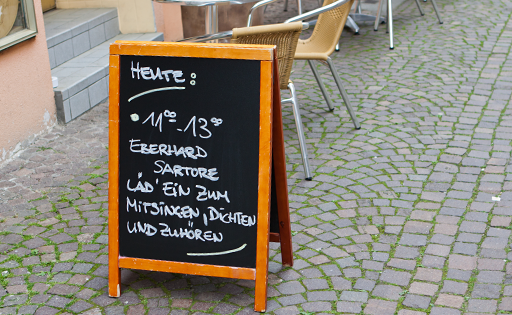 HEUTE:
• 11⁰⁰-13⁰⁰
EBERHARD
SARTORE
LÄD' EIN ZUM
MITSINGEN, DICHTEN
UND ZUHÖREN